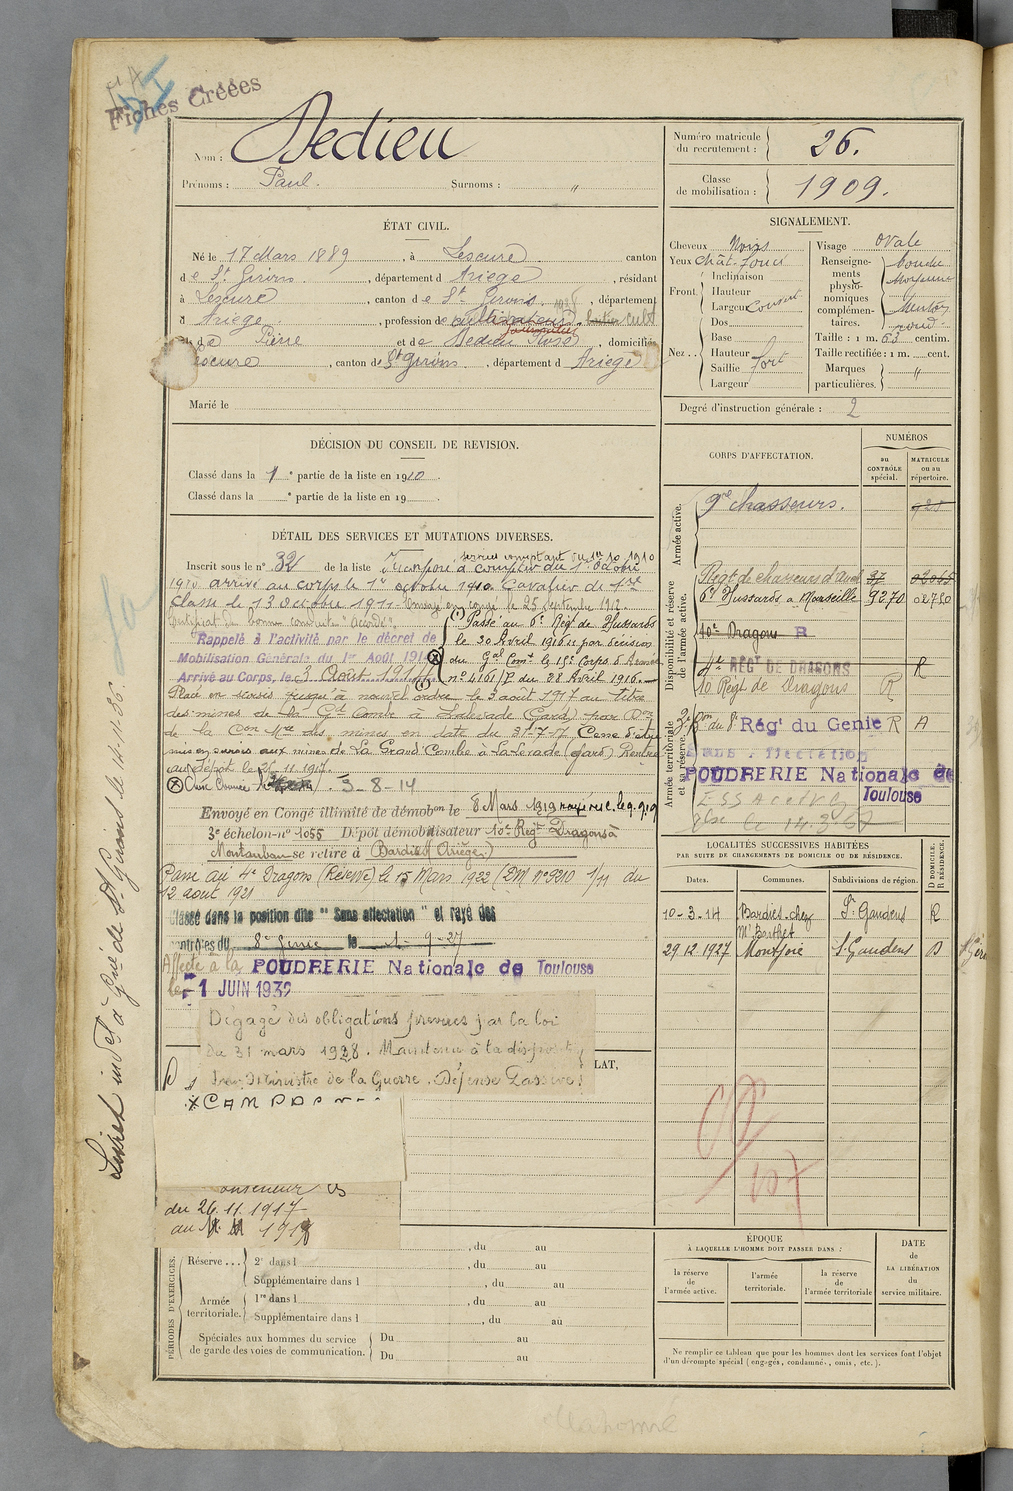 Fiches Créées
Nom : Dedieu
Prénoms : Paul. Surnoms : "
Numéro matricule du recrutement : 26.
Classe de mobilisation : 1909.
ÉTAT CIVIL.
Né le 17 Mars 1889, à Lescure canton
de St Girons, département d Ariège, résidant
à Lescure, canton de St Girons, département
d Ariège, profession de cultivateur cult
de Pierre et de Dedieu Rose, domiciliés
Lescure, canton de St Girons, département d Ariège
Marié le
SIGNALEMENT.
Cheveux Noirs
Yeux chât. foncé
Front. Inclinaison
Hauteur
Largeur Couvert
Nez . . Dos
Base
Hauteur
Saillie fort
Largeur
Visage Ovale
Renseignements physionomiques complémentaires. bouche moyenne Menton rond
Taille : 1 m. 63 centim.
Taille rectifiée : 1 m. cent.
Marques particulières. "
Degré d'instruction générale : 2
DÉCISION DU CONSEIL DE REVISION.
Classé dans la 1re partie de la liste en 1910.
Classé dans la e partie de la liste en 19
DÉTAIL DES SERVICES ET MUTATIONS DIVERSES.
services comptant du 1er 10 1910
Inscrit sous le n° 32 de la liste à compter du 1er octobre
1910 arrivé au corps le 1er octobre 1910. Cavalier de 1re
classe le 13 octobre 1911. Envoyé en congé le 25 septembre 1912.
Certificat de bonne conduite "accordé".
Rappelé à l'activité par le décret de
Mobilisation Générale du 1er Août 1914
Arrivé au Corps, le 3 Août 1914
Passé au 6e Régt de Hussards
le 30 Avril 1916 par décision
du Gal Comt le 15e Corps d'Armée
n° 4161/P. du 28 Avril 1916.
Placé en sursis jusqu'à nouvel ordre le 3 août 1917 au titre
des mines de la Gd Combe à Lalevade (Gard) par Don
de la Con Mre des mines en date du 31-7-17. Cesse d'être
mis en sursis aux mines de La Grand'Combe à La Levade (Gard) Rentré
au dépôt le 26.11.1917.
3-8-14
Envoyé en Congé illimité de démobon le 8 Mars 1919
3e échelon-n° 1055 Dépôt démobilisateur 10e Régt Dragons à
Montauban se retire à Bardies (Ariège)
Passé au 4e Dragons (Réserve) le 15 Mars 1922 (DM n° 9210 1/11 du
12 août 1921
Classé dans la position dite "Sans affectation" et rayé des
contrôles du 8e Génie le 1-9-27
Affecté à la POUDRERIE Nationale de Toulouse
le 1 JUIN 1932
Dégagé des obligations prévues par la loi
du 31 mars 1928. Maintenu à la disposit.
du Ministre de la Guerre. Défense Passive.
LAT,
du 26.11.1917
CORPS D'AFFECTATION.
NUMÉROS
au CONTRÔLE spécial.
MATRICULE ou au répertoire.
Armée active.
9e chasseurs.
Disponibilité et réserve de l'armée active.
Régt de chasseurs d'Aval 37 02065
6e Hussards à Marseille 9270 02730
10e Dragons R
4e RÉGT DE DRAGONS R
10. Régt de Dragons R
Armée territoriale et sa réserve.
du 8e Régt du Génie R A
Sans affectation
POUDRERIE Nationale de
Toulouse
LOCALITÉS SUCCESSIVES HABITÉES
PAR SUITE DE CHANGEMENTS DE DOMICILE OU DE RÉSIDENCE.
Dates. Communes. Subdivisions de région. D DOMICILE. R RÉSIDENCE.
10-3-14 Bardies chez Mr Barthet St Gaudens R
29 12 1927 Montjoie St Gaudens D
PÉRIODES D'EXERCICES.
, du au
Réserve . . . 2e dans l , du au
Supplémentaire dans l , du au
Armée territoriale. 1re dans l , du au
Supplémentaire dans l , du au
Spéciales aux hommes du service de garde des voies de communication. Du au
Du au
ÉPOQUE
À LAQUELLE L'HOMME DOIT PASSER DANS :
la réserve de l'armée active.
l'armée territoriale.
la réserve de l'armée territoriale
DATE de LA LIBÉRATION du service militaire.
Ne remplir ce tableau que pour les hommes dont les services font l'objet
d'un décompte spécial (engagés, condamnés, omis, etc.).